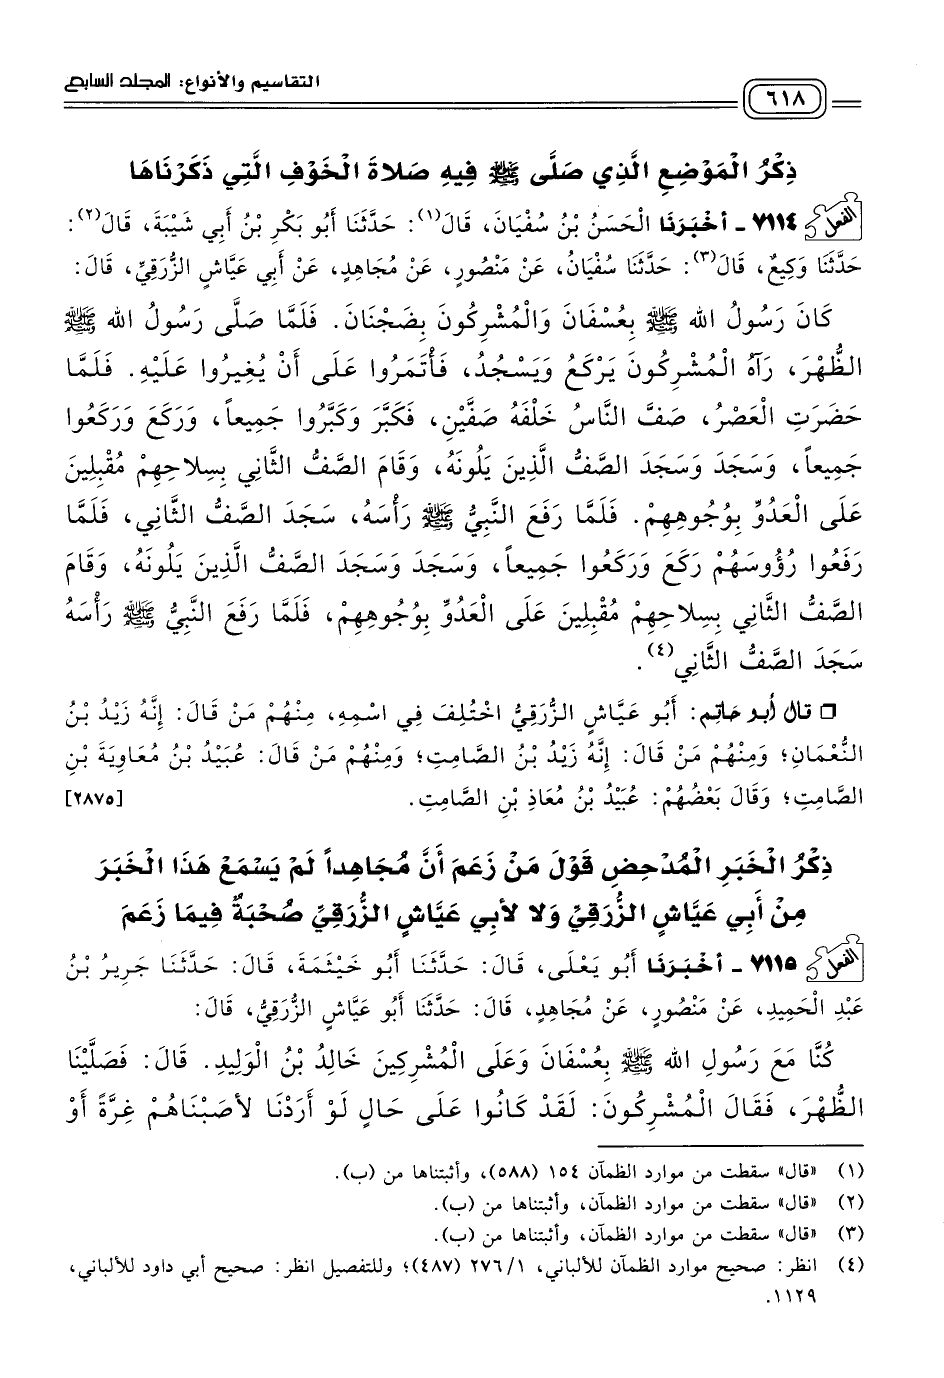 التقاسيم والأنواع: المجلد السابع
٦١٨
ذِكْرُ الْمَوْضِعِ الَّذِي صَلَّى ﷺ فِيهِ صَلاةَ الْخَوْفِ الَّتِي ذَكَرْنَاهَا
الفعل ٧١١٤ - أَخْبَرَنَا الْحَسَنُ بْنُ سُفْيَانَ، قَالَ(١): حَدَّثَنَا أَبُو بَكْرِ بْنُ أَبِي شَيْبَةَ، قَالَ(٢):
حَدَّثَنَا وَكِيعٌ، قَالَ(٣): حَدَّثَنَا سُفْيَانُ، عَنْ مَنْصُورٍ، عَنْ مُجَاهِدٍ، عَنْ أَبِي عَيَّاشٍ الزُّرَقِيِّ، قَالَ:
كَانَ رَسُولُ الله ﷺ بِعُسْفَانَ وَالْمُشْرِكُونَ بِضَجْنَانَ. فَلَمَّا صَلَّى رَسُولُ الله ﷺ
الظُّهْرَ، رَآهُ الْمُشْرِكُونَ يَرْكَعُ وَيَسْجُدُ، فَأْتَمَرُوا عَلَى أَنْ يُغِيرُوا عَلَيْهِ. فَلَمَّا
حَضَرَتِ الْعَصْرُ، صَفَّ النَّاسُ خَلْفَهُ صَفَّيْنِ، فَكَبَّرَ وَكَبَّرُوا جَمِيعاً، وَرَكَعَ وَرَكَعُوا
جَمِيعاً، وَسَجَدَ وَسَجَدَ الصَّفُّ الَّذِينَ يَلُونَهُ، وَقَامَ الصَّفُّ الثَّانِي بِسِلاحِهِمْ مُقْبِلِينَ
عَلَى الْعَدُوِّ بِوُجُوهِهِمْ. فَلَمَّا رَفَعَ النَّبِيُّ ﷺ رَأْسَهُ، سَجَدَ الصَّفُّ الثَّانِي، فَلَمَّا
رَفَعُوا رُؤُوسَهُمْ رَكَعَ وَرَكَعُوا جَمِيعاً، وَسَجَدَ وَسَجَدَ الصَّفُّ الَّذِينَ يَلُونَهُ، وَقَامَ
الصَّفُّ الثَّانِي بِسِلاحِهِمْ مُقْبِلِينَ عَلَى الْعَدُوِّ بِوُجُوهِهِمْ، فَلَمَّا رَفَعَ النَّبِيُّ ﷺ رَأْسَهُ
سَجَدَ الصَّفُّ الثَّانِي(٤).
❒ قال أبو حاتم: أَبُو عَيَّاشٍ الزُّرَقِيُّ اخْتُلِفَ فِي اسْمِهِ، مِنْهُمْ مَنْ قَالَ: إِنَّهُ زَيْدُ بْنُ
النُّعْمَانِ؛ وَمِنْهُمْ مَنْ قَالَ: إِنَّهُ زَيْدُ بْنُ الصَّامِتِ؛ وَمِنْهُمْ مَنْ قَالَ: عُبَيْدُ بْنُ مُعَاوِيَةَ بْنِ
الصَّامِتِ؛ وَقَالَ بَعْضُهُمْ: عُبَيْدُ بْنُ مُعَاذِ بْنِ الصَّامِتِ. [٢٨٧٥]
ذِكْرُ الْخَبَرِ الْمُدْحِضِ قَوْلَ مَنْ زَعَمَ أَنَّ مُجَاهِداً لَمْ يَسْمَعْ هَذَا الْخَبَرَ
مِنْ أَبِي عَيَّاشٍ الزُّرَقِيِّ وَلا لأَبِي عَيَّاشٍ الزُّرَقِيِّ صُحْبَةٌ فِيمَا زَعَمَ
الفعل ٧١١٥ - أَخْبَرَنَا أَبُو يَعْلَى، قَالَ: حَدَّثَنَا أَبُو خَيْثَمَةَ، قَالَ: حَدَّثَنَا جَرِيرُ بْنُ
عَبْدِ الْحَمِيدِ، عَنْ مَنْصُورٍ، عَنْ مُجَاهِدٍ، قَالَ: حَدَّثَنَا أَبُو عَيَّاشٍ الزُّرَقِيُّ، قَالَ:
كُنَّا مَعَ رَسُولِ الله ﷺ بِعُسْفَانَ وَعَلَى الْمُشْرِكِينَ خَالِدُ بْنُ الْوَلِيدِ. قَالَ: فَصَلَّيْنَا
الظُّهْرَ، فَقَالَ الْمُشْرِكُونَ: لَقَدْ كَانُوا عَلَى حَالٍ لَوْ أَرَدْنَا لأَصَبْنَاهُمْ غِرَّةً أَوْ
(١) «قال» سقطت من موارد الظمآن ١٥٤ (٥٨٨)، وأثبتناها من (ب).
(٢) «قال» سقطت من موارد الظمآن، وأثبتناها من (ب).
(٣) «قال» سقطت من موارد الظمآن، وأثبتناها من (ب).
(٤) انظر: صحيح موارد الظمآن للألباني، ٢٧٦/١ (٤٨٧)؛ وللتفصيل انظر: صحيح أبي داود للألباني،
١١٢٩.